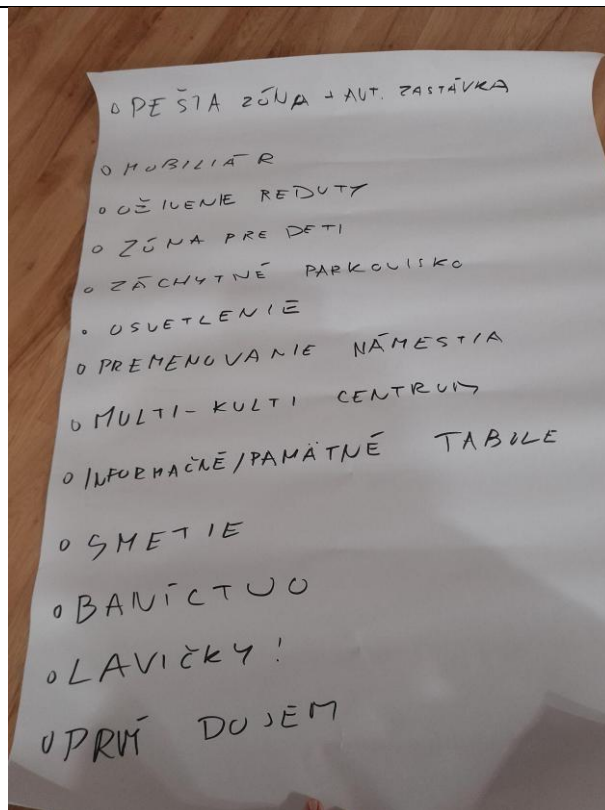 o PEŠIA ZÓNA + AUT. ZASTÁVKA
o MOBILIÁR
o OŽIVENIE REDUTY
o ZÓNA PRE DETI
o ZÁCHYTNÉ PARKOVISKO
o OSVETLENIE
o PREMENOVANIE NÁMESTIA
o MULTI-KULTI CENTRUM
o INFORMAČNÉ/PAMÄTNÉ TABULE
o SMETIE
o BANÍCTVO
o LAVIČKY!
o PRVÝ DOJEM